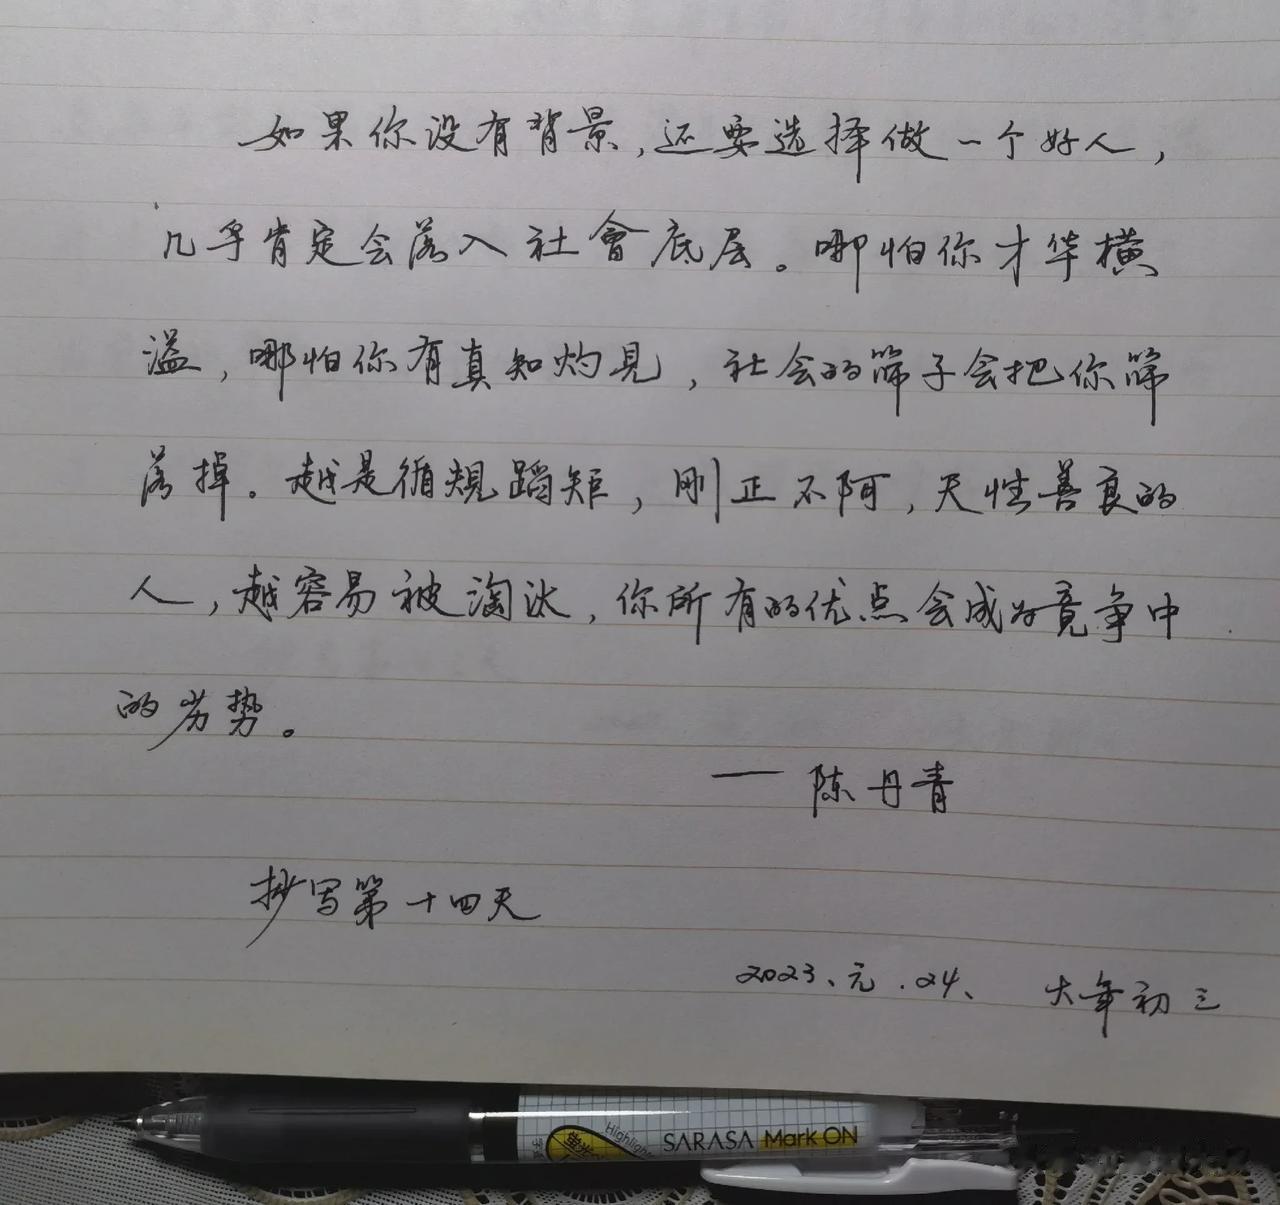 如果你没有背景，还要选择做一个好人，
几乎肯定会落入社會底层。哪怕你才华横
溢，哪怕你有真知灼見，社会的筛子会把你筛
落掉。越是循規蹈矩，刚正不阿，天性善良的
人，越容易被淘汰，你所有的优点会成为竞争中
的劣势。
——陈丹青
抄写第十四天
2023、元.24、 大年初三
Highligh
SARASA Mark ON